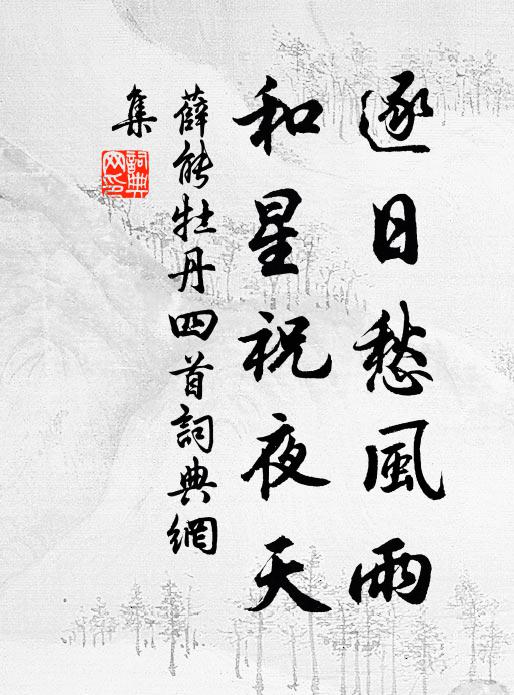 逐日愁風雨
和星祝夜天
薛能牡丹四首詞典網
集
詞典網印